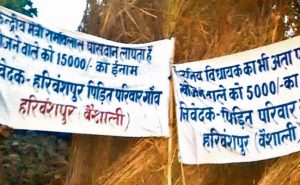 केन्द्रीय मंत्री रामविलास पासवान लापता है
खोजने वाले को 15000/- का ईनाम
निवेदक- हरिवंशपुर पिड़ित परिवार गाँव
हरिवंशपुर (वैशाली)
विधायक का भी अता प
वाले को 5000/- का
निवेदक- पिड़ित परिवार
हरिवंशपुर (वैशाली)